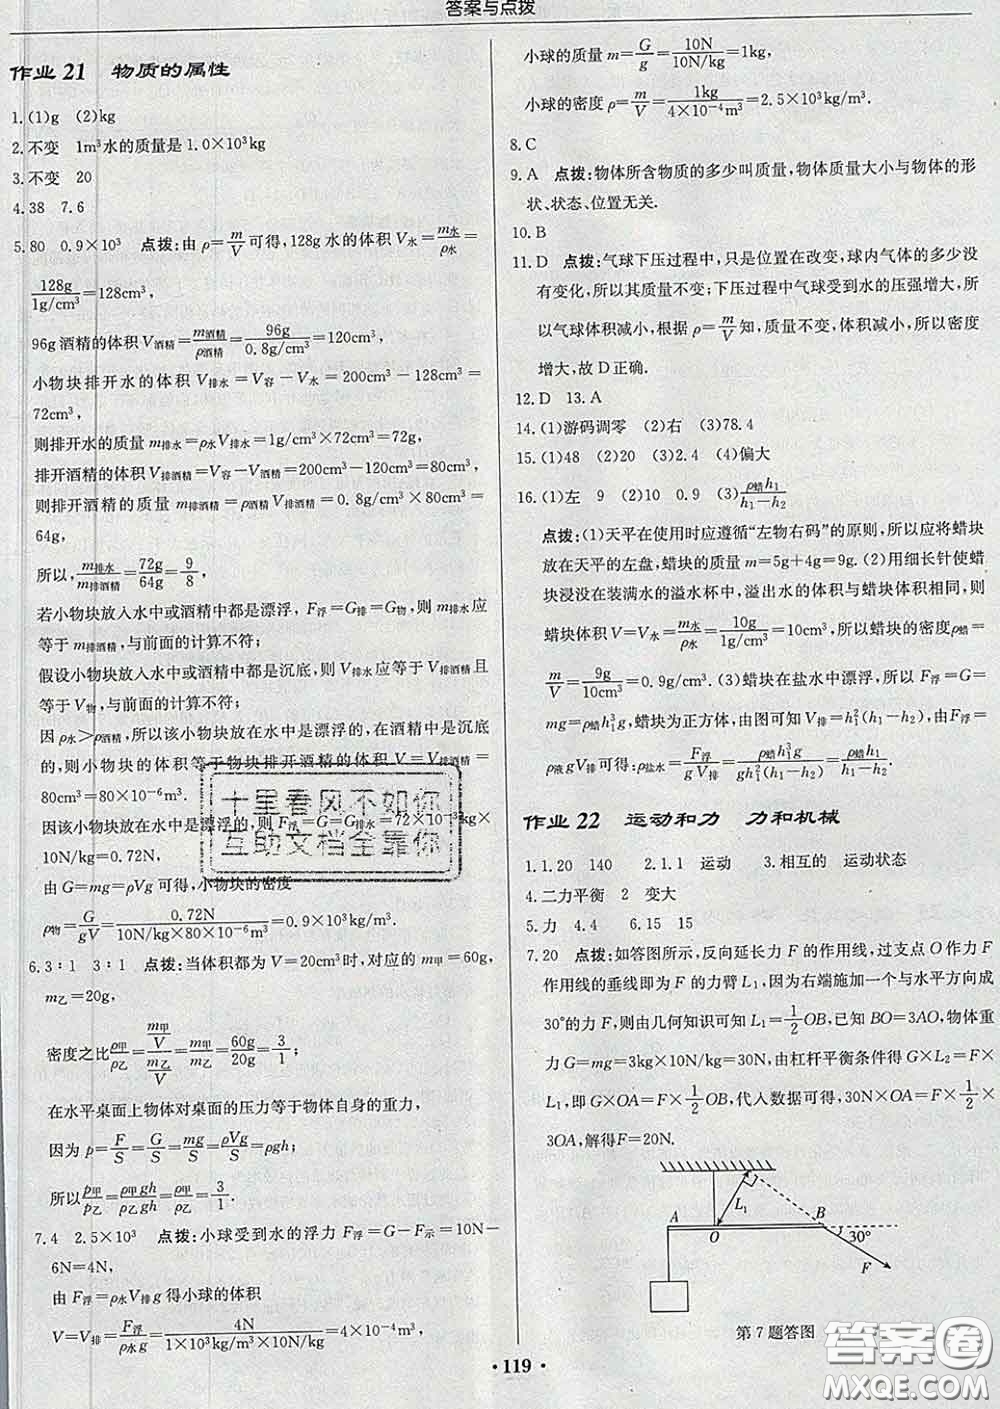 答案与点拨
作业 21　物质的属性
1.(1)g　(2)kg
2.不变　1m³水的质量是1.0×10³kg
3.不变　20
4.38　7.6
5.80　0.9×10³　点拨:由 ρ=m/V 可得,128g 水的体积 V水=m水/ρ水=
128g/1g/cm³=128cm³,
96g酒精的体积 V酒精=m酒精/ρ酒精=96g/0.8g/cm³=120cm³,
小物块排开水的体积 V排水=V容-V水=200cm³-128cm³=
72cm³,
则排开水的质量 m排水=ρ水V排水=1g/cm³×72cm³=72g,
排开酒精的体积 V排酒精=V容-V酒精=200cm³-120cm³=80cm³,
则排开酒精的质量 m排酒精=ρ酒精V排酒精=0.8g/cm³×80cm³=
64g,
所以,m排水/m排酒精=72g/64g=9/8,
若小物块放入水中或酒精中都是漂浮,F浮=G排=G物,则 m排水应
等于 m排酒精,与前面的计算不符;
假设小物块放入水中或酒精中都是沉底,则 V排水应等于 V排酒精且
等于 V物,与前面的计算不符;
因 ρ水>ρ酒精,所以该小物块放在水中是漂浮的,在酒精中是沉底
的,则小物块的体积等于物块排开酒精的体积 V=V排酒精=
80cm³=80×10⁻⁶m³,
因该小物块放在水中是漂浮的,则 F浮=G=G排水=72×10⁻³kg×
10N/kg=0.72N,
由 G=mg=ρVg 可得,小物块的密度
ρ物=G/gV=0.72N/10N/kg×80×10⁻⁶m³=0.9×10³kg/m³.
6.3∶1　3∶1　点拨:当体积都为 V=20cm³时,对应的 m甲=60g,
m乙=20g,
密度之比ρ甲/ρ乙=(m甲/V)/(m乙/V)=m甲/m乙=60g/20g=3/1;
在水平桌面上物体对桌面的压力等于物体自身的重力,
因为 p=F/S=G/S=mg/S=ρVg/S=ρgh;
所以p甲/p乙=ρ甲gh/ρ乙gh=ρ甲/ρ乙=3/1.
7.4　2.5×10³　点拨:小球受到水的浮力 F浮=G-F示=10N-
6N=4N,
由 F浮=ρ水V排g 得小球的体积
V=V排=F浮/ρ水g=4N/1×10³kg/m³×10N/kg=4×10⁻⁴m³,
小球的质量 m=G/g=10N/10N/kg=1kg,
小球的密度 ρ=m/V=1kg/4×10⁻⁴m³=2.5×10³kg/m³.
8.C
9.A　点拨:物体所含物质的多少叫质量,物体质量大小与物体的形
状、状态、位置无关.
10.B
11.D　点拨:气球下压过程中,只是位置在改变,球内气体的多少没
有变化,所以其质量不变;下压过程中气球受到水的压强增大,所
以气球体积减小,根据 ρ=m/V知,质量不变,体积减小,所以密度
增大,故 D正确.
12.D　13.A
14.(1)游码调零　(2)右　(3)78.4
15.(1)48　(2)20　(3)2.4　(4)偏大
16.(1)左　9　(2)10　0.9　(3)ρ蜡h₁/h₁-h₂
点拨:(1)天平在使用时应遵循“左物右码”的原则,所以应将蜡块
放在天平的左盘,蜡块的质量 m=5g+4g=9g.(2)用细长针使蜡
块浸没在装满水的溢水杯中,溢出水的体积与蜡块体积相同,则
蜡块体积 V=V水=m水/ρ水=10g/1g/cm³=10cm³,所以蜡块的密度ρ蜡=
m/V=9g/10cm³=0.9g/cm³.(3)蜡块在盐水中漂浮,所以 F浮=G=
mg=ρ蜡h₁³g,蜡块为正方体,由图可知 V排=h₁²(h₁-h₂),由 F浮=
ρ液gV排可得:ρ盐水=F浮/gV排=ρ蜡h₁³g/gh₁²(h₁-h₂)=ρ蜡h₁/h₁-h₂.
作业 22　运动和力　力和机械
1.1.20　140　2.1.1　运动　3.相互的　运动状态
4.二力平衡　2　变大
5.力　4.4　6.15　15
7.20　点拨:如答图所示,反向延长力 F 的作用线,过支点 O 作力 F
作用线的垂线即为 F 的力臂 L₁,因为右端施加一个与水平方向成
30°的力 F,则由几何知识可知 L₁=1/2OB,已知 BO=3AO,物体重
力 G=mg=3kg×10N/kg=30N,由杠杆平衡条件得 G×L₂=F×
L₁,即 G×OA=F×1/2OB,代入数据可得,30N×OA=F×1/2×
3OA,解得F=20N.
L₁
A
O
B
30°
F
第 7 题答图
· 119 ·
十里春风不如你
互助文档全靠你
答案圈
MXQE.COM